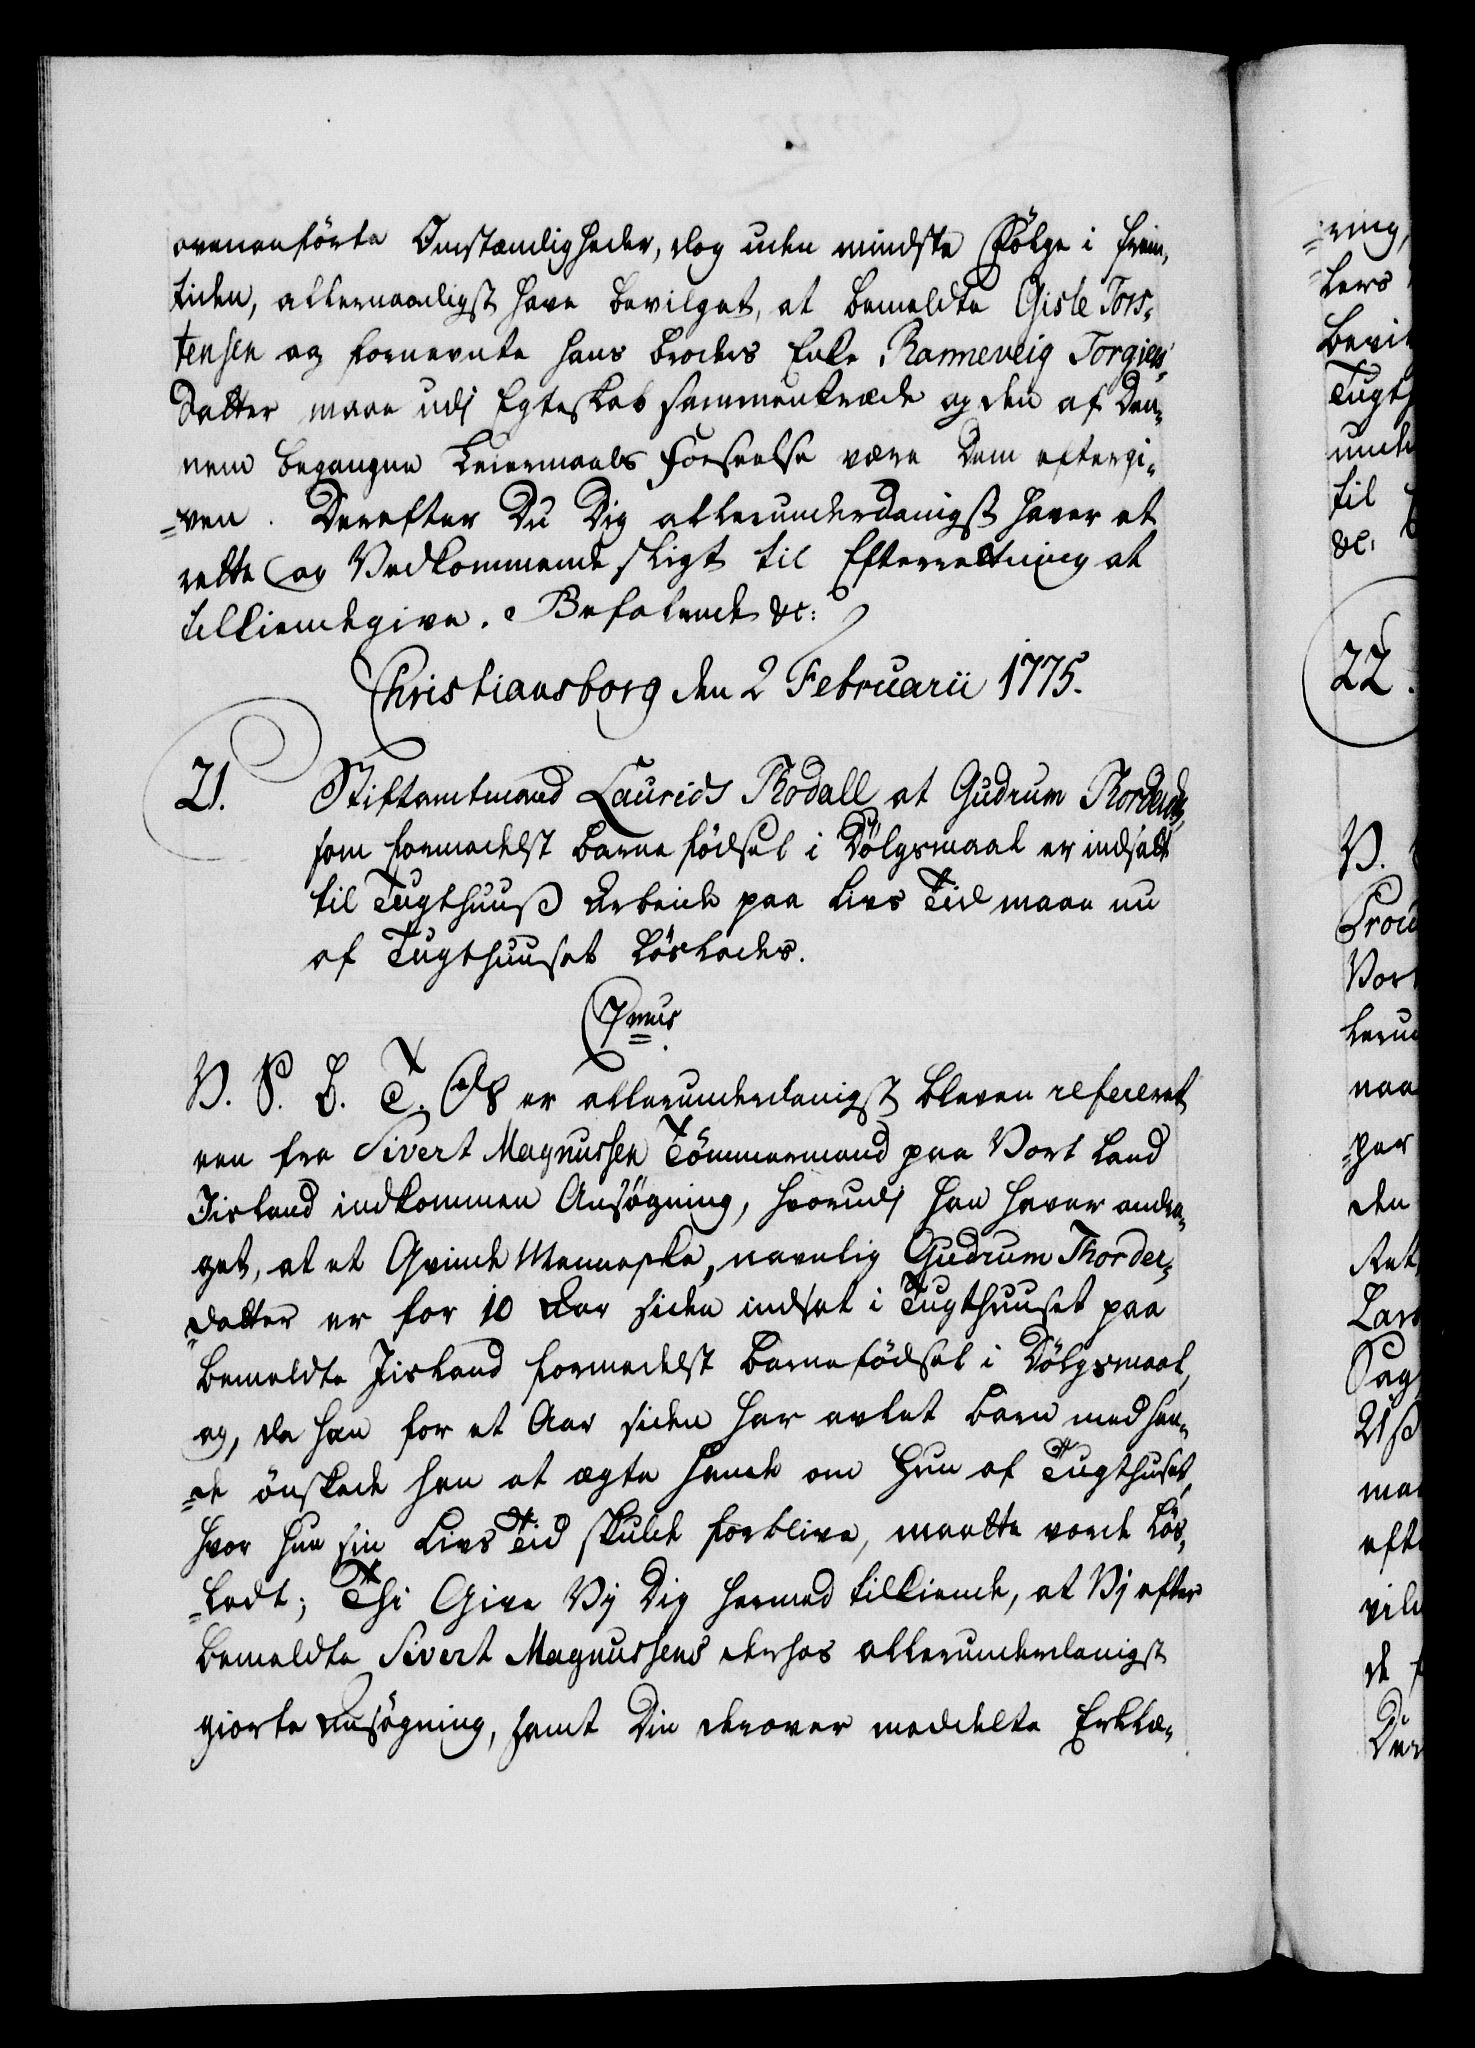 ovenanförte Omstændigheder, dog uden mindste Fölge i frem-
tiden, allernaadigst have bevilget, at bemeldte Gisle Tors-
tensen og fornevnte hans Broders Enke Ranneveig Torgiers-
Datter maae udj Egteskab sammentræde og den af Den-
nem begangne Leiermaals Forseelse være Dem eftergi-
-ven. Derefter Du Dig allerunderdanigst haver at
rette og Vedkommende sligt til Efterretning at
tilkiendegive. Befalende &c:
Christiansborg den 2 Februarii 1775.
21. Stiftamtmand Laurids Thodall at Gudrum Thorderdr,
som formedelst Barne födsel i Dölgsmaal er indsatt
til Tugthuuß Arbeide paa Livs Tid maae nu
af Tugthuuset Löslades.
C 7mus.
V. S. G. T. Os er allerunderdanigst bleven refereret
een fra Sivert Magnussen Tömmermand paa Vort Land
Jisland indkommen Ansögning, hvorudj han haver andra-
get, at et Qvinde Menneske, navnlig Gudrum Thorder-
-datter er for 10 Aar siden indsat i Tugthuuset paa
bemeldte Jisland formedelst Barnefödsel i Dölgsmaal,
og, da han for et Aar siden har avlet Barn med hen-
-de önskede han at ægte hende om hun af Tugthuset,
hvor hun sin Livs Tid skulde forblive, maatte vorde lös-
-ladt; Thi Give Vij Dig hermed tilkiende, at Vj efter
bemeldte Sivert Magnussens derhos allerunderdanigst
giorte Ansögning, samt Din derover meddelte Erklæ-
-ring,
22.
V.